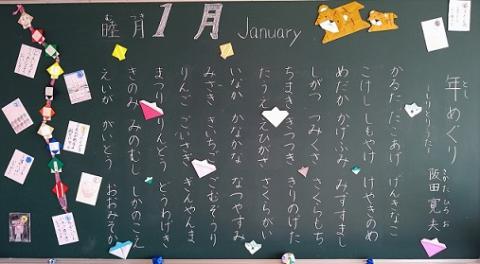 睦月 むづき 1月 January
年めぐり とし
―しりとりうた―
阪田寛夫 さかた ひろお
かるた たこあげ げんきなこ
こけし しもやけ けやきのめ
めだか かげふみ みずすまし
しがつ つみくさ さくらもち
ちまき きつつき きりのげた
たうえ えひがさ さくらがい
いなか かなかな なつやすみ
みさき きいちご ごむぞうり
りんご ごいさぎ ぎんやんま
まつり りんどう どうわげき
きのみ みのむし しかのこえ
えいが がいとう おおみそか